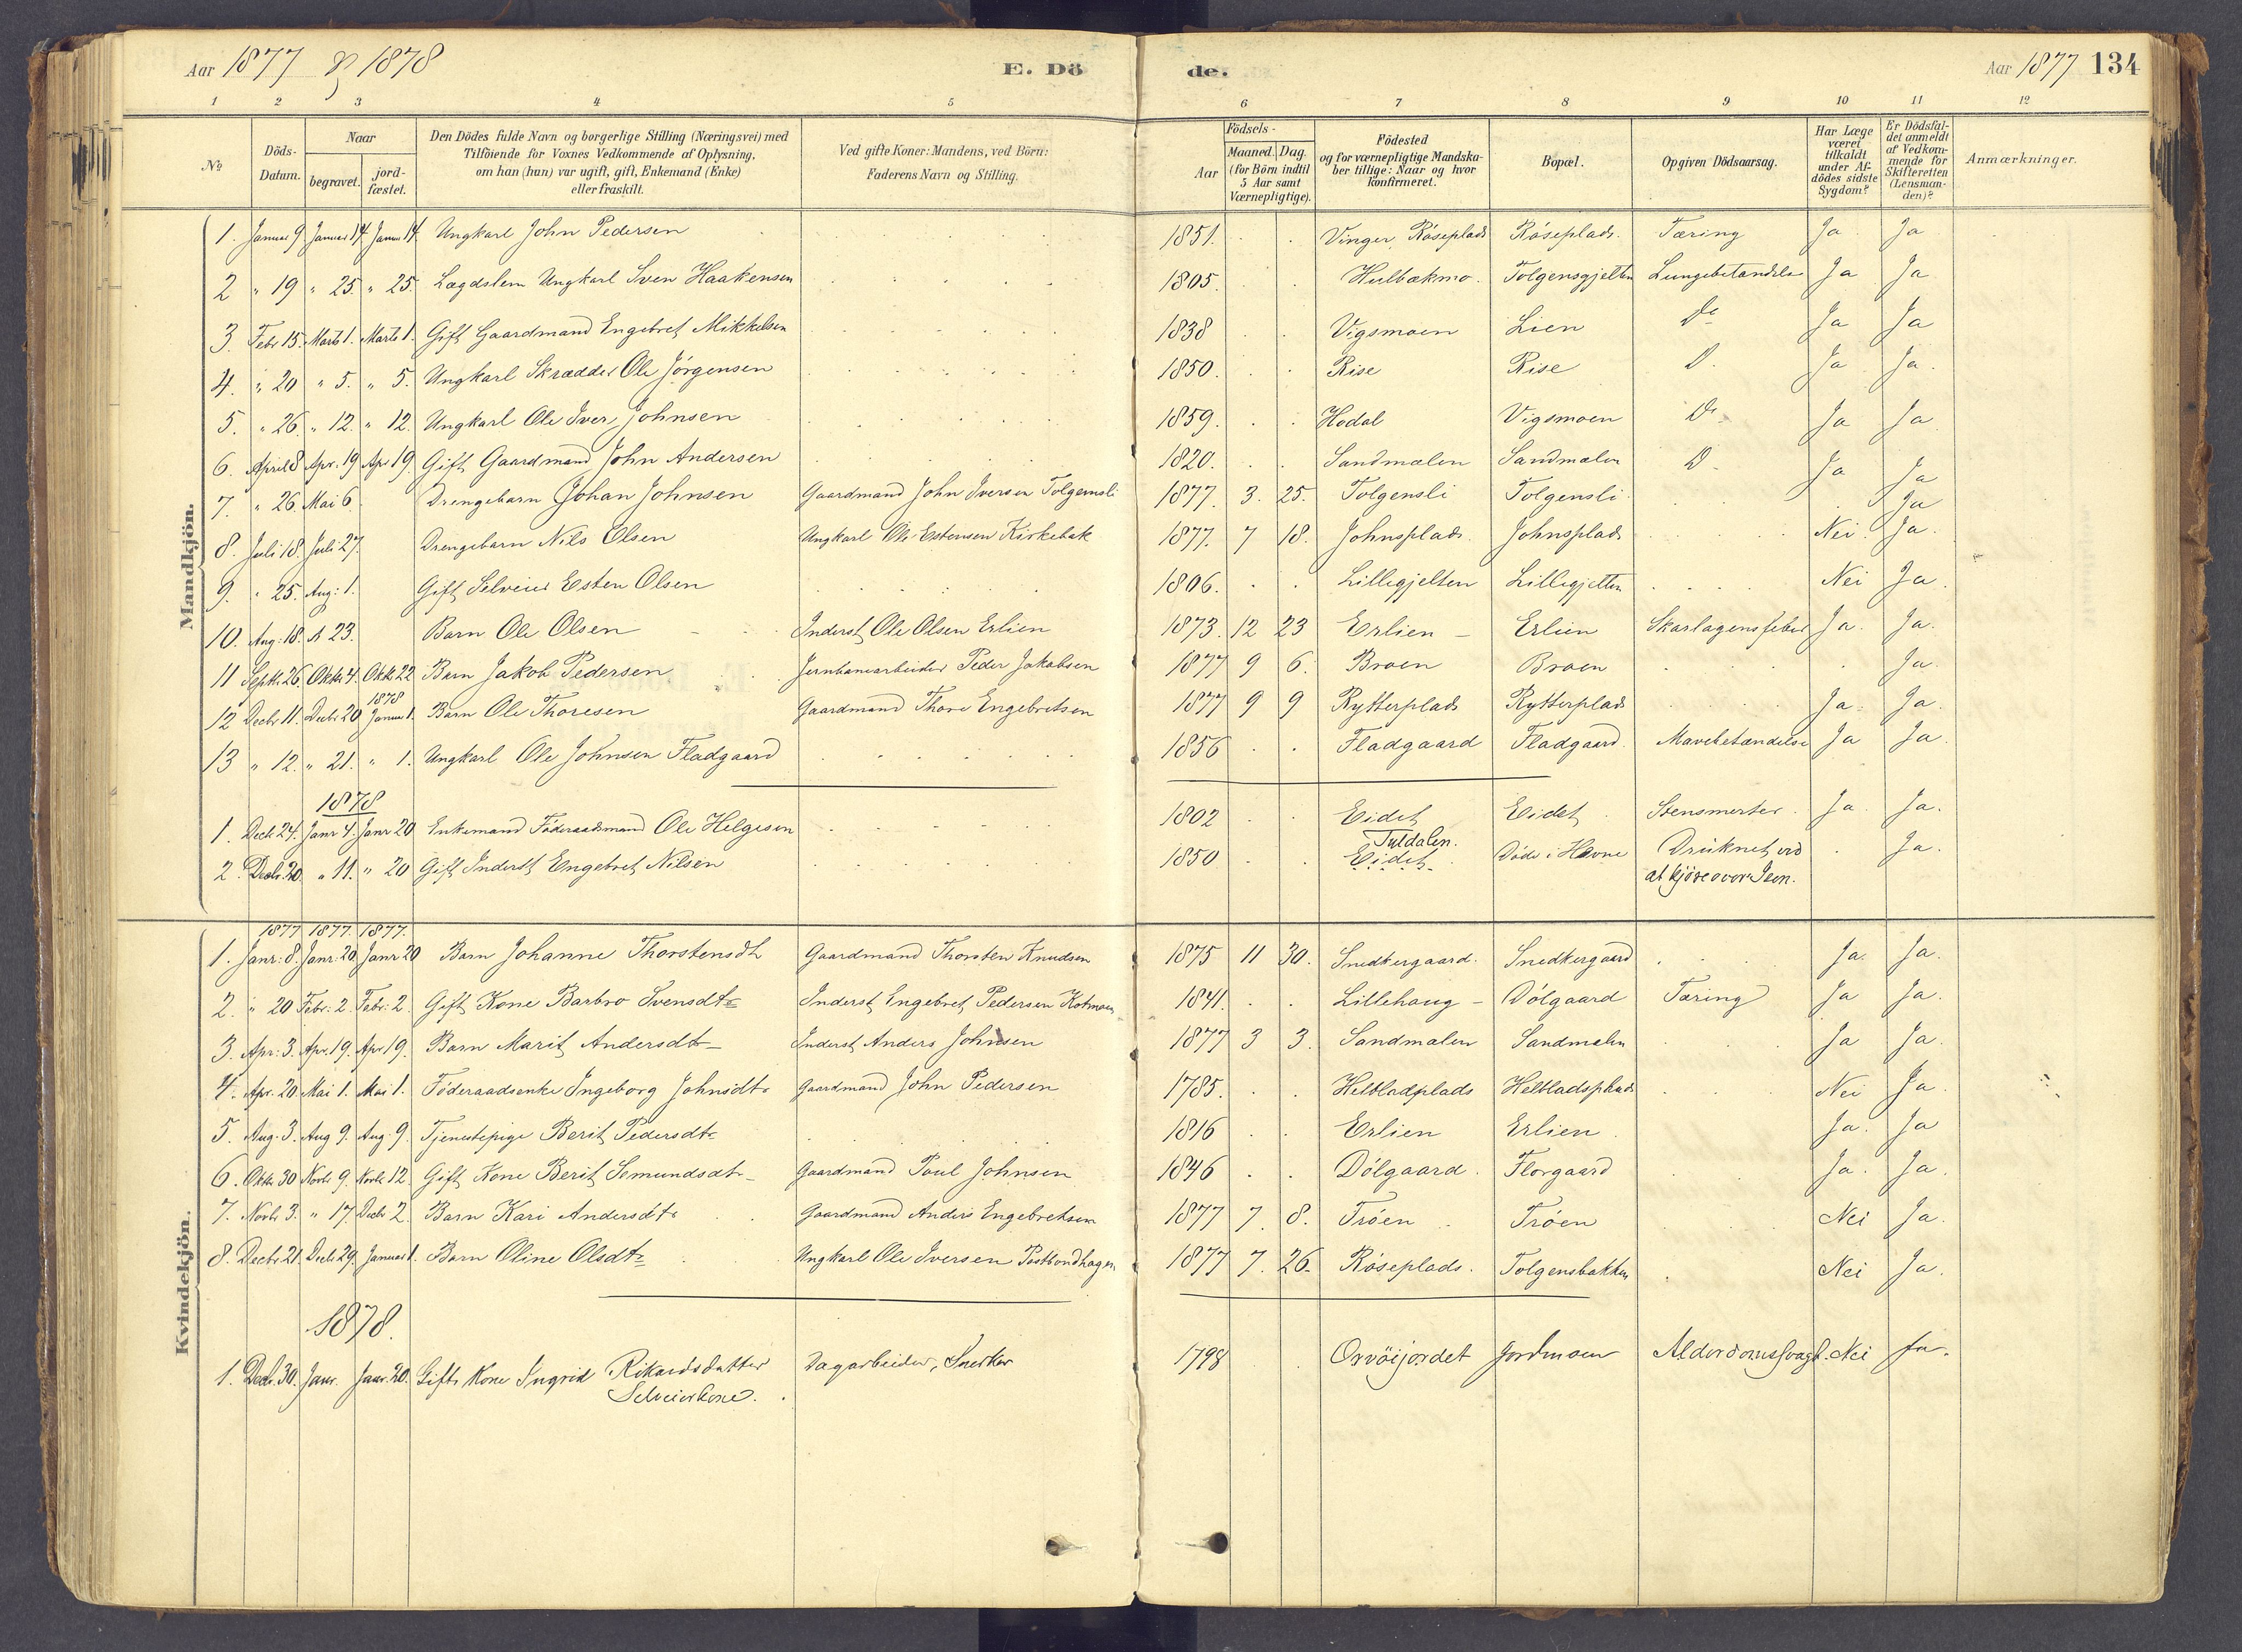 Aar 1877 & 1878 E. Dö de. Aar 1877 134
1 2 3 4 5 6 7 8 9 10 11 12
No
Döds-Datum.
Naar
begravet.
jordfæstet.
Den Dödes fulde Navn og borgerlige Stilling (Næringsvei) med
Tilföiende for Voxnes Vedkommende af Oplysning,
om han (hun) var ugift, gift, Enkemand (Enke)
eller fraskilt.
Ved gifte Koner: Mandens, ved Börn:
Faderens Navn og Stilling.
Födsels-
Aar
Maaned. Dag.
(for Börn indtil
5 Aar samt
Værnepligtige).
Födested
og for værnepligtige Mandska-
ber tillige: Naar og hvor
konfirmeret.
Bopæl.
Opgiven Dödsaarsag.
Har Læge
været
tilkaldt
under Af-
dödes sidste
Sygdom?
Er Dödsfal-
det anmeldt
af Vedkom-
mende for
Skifteretten
(Lensman-
den)?
Anmærkninger.
Mandkjön.
1. Januar 9 Januar 14 Januar 14 Ungkarl John Pedersen 1851. Vinger, Röseplads Röseplads. Tæring Ja Ja
2 " 19 " 25. " 25. Lægdslem Ungkarl Sven Haakensen 1805. Hulbækmo. Tolgensgjelten Lungebetændelse Ja Ja
3. Febr 15. Marts 1. Marts 1. Gift Gaardmand Engebret Mikkelsen 1838 Vigsmoen Lien Do Ja Ja
4. " 20 " 5. " 5. Ungkarl Skrædder Ole Jörgensen 1850. Rise Rise D. Ja Ja.
5. " 26. " 12. " 12. Ungkarl Ole Iver Johnsen 1859. Hodal Vigsmoen Do Ja Ja
6. April 8 Apr. 19 Apr 19. Gift Gaardmand John Andersen 1820. Sandmælen Sandmælen D. Ja Ja
7. " 26. Mai 6. Drengebarn Johan Johnsen Gaardmand John Iversen Tolgensli 1877. 3. 25. Tolgensli Tolgensli. Ja
8. Juli 18. Juli 27. Drengebarn Nils Olsen Ungkarl Ole Estensen Kirkebak 1877. 7 18. Johnsplads Johnsplads Nei Ja.
9. " 25. Aug: 1. Gift Selveier Esten Olsen 1806. Lillegjelten Lillegjelten Nei Ja.
10. Aug: 18. A 23. Barn Ole Olsen Inderst Ole Olsen Erlien 1873. 12 23 Erlien Erlien Skarlagensfeber Ja. Ja.
11 Septr. 26. Oktr 4. Oktr 22 Barn Jakob Pedersen Jernbanearbeider Peder Jakobsen 1877 9 6. Broen Broen Ja.
1878
12 Decbr 11. Decbr 20 Januar 1. Barn Ole Thoresen Gaardmand Thore Engebretsen 1877 9 9 Rytterplads Rytterplads Ja. Ja.
13 " 12. " 21. " 1. Ungkarl Ole Johnsen Fladgaard 1856 Fladgaard Fladgaard. Mavebetændelse Ja Ja.
1878
1. Decb 24. Janr 4. Janr 20 Enkemand Föderaadsmand Ole Helgesen 1802 Eidet Eidet Stensmerter. Ja. Ja.
Tyldalen.
2. Decbr. 20. " 11. " 20 Gift Inderst Engebret Nilsen 1850 Eidet Döde i Havne Druknet ved Ja.
at kjöre over Isen.
Kvindekjön.
1877 1877. 1877.
1. Janr: 8. Janr: 20. Janr 20 Barn Johanne Thorstensdtr Gaardmand Thorsten Knudsen 1875 11 30. Snedkergaard. Snedkergaard Ja. Ja.
2. " 20 Febr: 2. Febr: 2. Gift Kone Barbro Svensdtr Inderst Engebret Pedersen Kotmoen 1841. Lillehaug Dölgaard Tæring Ja Ja.
3. Apr: 3. Apr. 19. Apr 19. Barn Marit Andersdtr Inderst Anders Johnsen 1877 3 3. Sandmalen Sandmalen Ja Ja.
4. Apr. 20. Mai 1. Mai 1. Föderaadsenke Ingeborg Johnsdtr. Gaardmand John Pedersen 1785. Helbladplads Helbladsplads Nei Ja.
5. Aug. 3. Aug 9. Aug. 9. Tjenestepige Berit Pedersdtr 1816 Erlien Erlien. Ja. Ja
6. Oktr 30 Novbr 9. Novbr 12. Gift Kone Berit Semundsdtr Gaardmand Poul Johnsen 1846 Dölgaard. Florgaard Ja. Ja.
7. Novbr 3. " 17. Decbr 2. Barn Kari Andersdtr Gaardmand Anders Engebretsen 1877 7. 8. Tröen Tröen Nei Ja.
8. Decbr 21. Decbr 29. Januar 1. Barn Oline Olsdtr Ungkarl Ole Iversen 1877 7. 26. Röseplads. Tolgensbakken Nei Ja.
1878.
1. Decbr. 30. Janr. Janr. 20. Gift Kone Ingrid Rikardsdatter Dagarbeider, Snerker 1798 Orvöijordet Jordmoen Alderdomssvagh. Nei Ja.
Selveierkone.